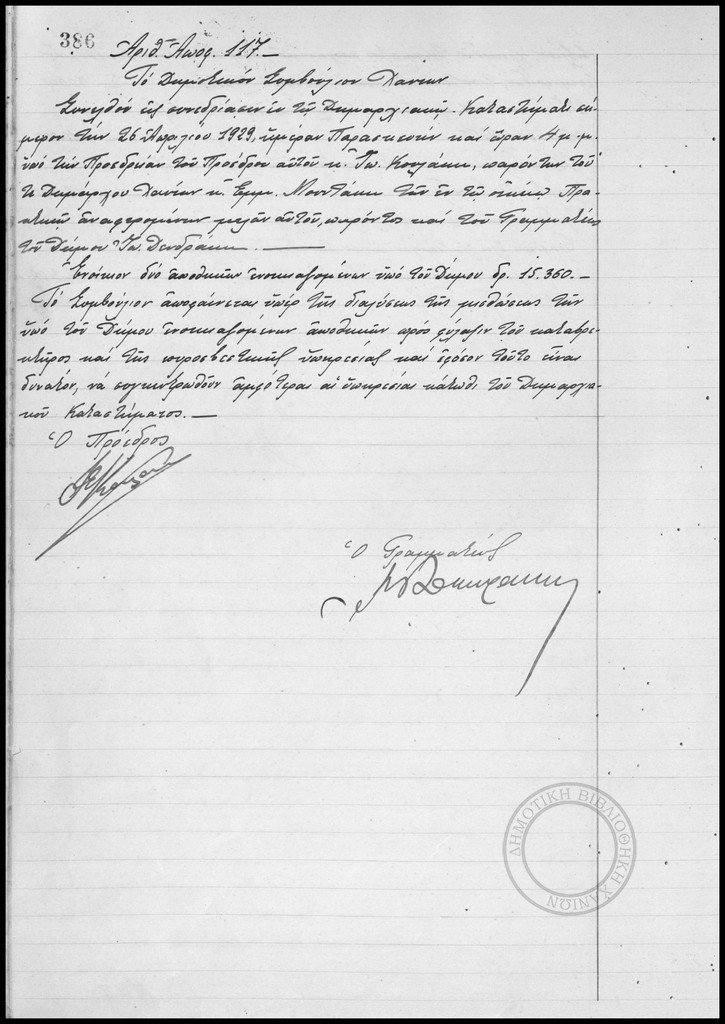 386
Ἀριθ. Ἀποφ. 117.-
Τό Δημοτικόν Συμβούλιον Χανίων
Συνελθόν εἰς συνεδρίασιν ἐν τῷ Δημαρχιακῷ Καταστήματι σή-
μερον τήν 26 Ἀπριλίου 1929, ἡμέραν Παρασκευήν καί ὥραν 4 μ.μ.
ὑπό τήν Προεδρίαν τοῦ Προέδρου αὐτοῦ κ. Ἰω. παρόντων τοῦ
κ Δημάρχου Χανίων κ. Ἐμμ. Μουντάκη τῶν ἐν τῷ οἰκείῳ Πρα-
κτικῷ ἀναφερομένων μελῶν αὐτοῦ, παρόντος καί τοῦ Γραμματέως
τοῦ Δήμου Ἰω. Δενδράκη. —
Ἐνοίκιον δύο ἀποθηκῶν ἐνοικιαζομένων ὑπό τοῦ Δήμου δρ. 15.360.-
Τό Συμβούλιον ἀποφαίνεται ὑπέρ τῆς διαλύσεως τῆς μισθώσεως τῶν
ὑπό τοῦ Δήμου ἐνοικιαζομένων ἀποθηκῶν πρός φύλαξιν τοῦ καταβρε-
κτῆρος καί τῆς πυροσβεστικῆς ὑπηρεσίας καί ἐφόσον τοῦτο εἶναι
δυνατόν, νά συγκεντρωθοῦν ἀμφότεραι αἱ ὑπηρεσίαι κάτωθι τοῦ Δημαρχια-
κοῦ Καταστήματος. —
Ὁ Πρόεδρος
Ὁ Γραμματεύς
ΔΗΜΟΤΙΚΗ ΒΙΒΛΙΟΘΗΚΗ ΧΑΝΙΩΝ